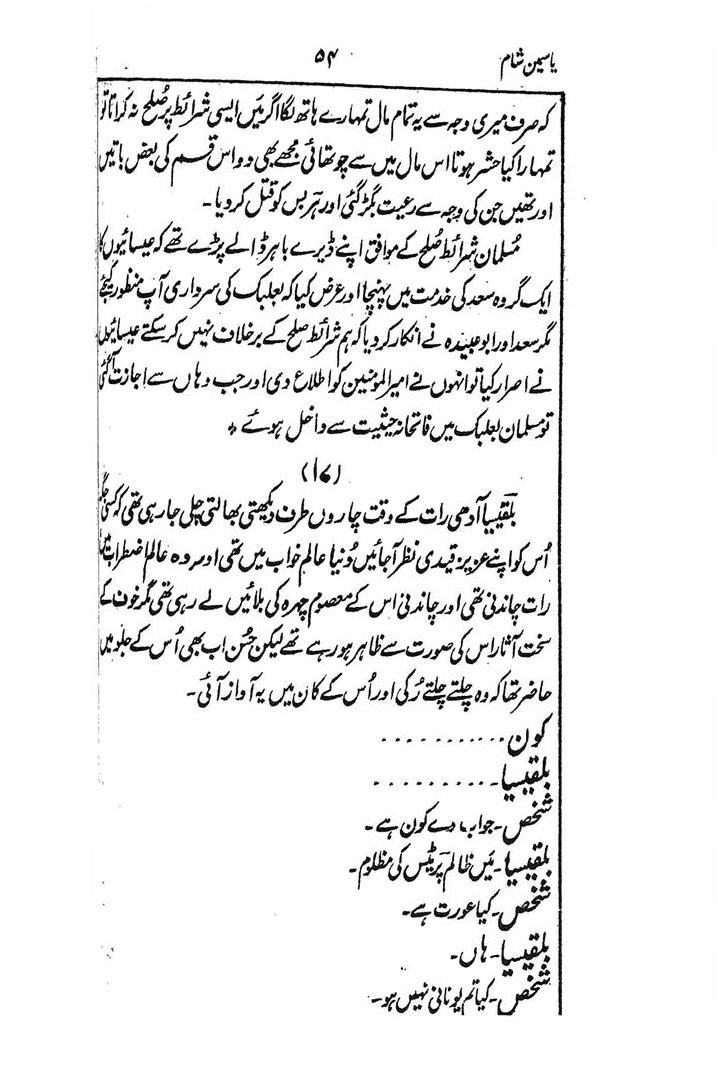 یاسمین شام
۵۴
کہ صرف میری وجہ سے یہ تمام مال تمہارے ہاتھ لگا اگر مَیں ایسی شرائط پر صُلح نہ کراتا تو
تمہارا کیا حشر ہوتا اس مال میں سے چوتھائی مجھے بھی دو اس قسم کی بعض باتیں
اور تھیں جن کی وجہ سے رعیت بگڑ گئی اور ہربس کو قتل کر دیا۔
مُسلمان شرائط صُلح کے موافق اپنے ڈیرے باہر ڈالے پڑے تھے کہ عیسائیوں کا
ایک گروہ سعد کی خدمت میں پہنچا اور عرض کیا کہ بعلبک کی سرداری آپ منظور کیجئے
مگر سعد اور ابو عبیدہ نے انکار کر دیا کہ ہم شرائط صلح کے برخلاف نہیں کر سکتے عیسائیوں
نے اصرار کیا تو انہوں نے امیرالمؤمنین کو اطلاع دی اور جب وہاں سے اجازت آگئی
تو مسلمان بعلبک میں فاتحانہ حیثیت سے داخل ہوئے ۔
(۱۷)
بلقیسیا آدھی رات کے وقت چاروں طرف دیکھتی بھالتی چلی جا رہی تھی کہ کسی جگہ
اُس کو اپنے عزیز قیدی نظر آجائیں دُنیا عالم خواب میں تھی اور وہ عالم اضطراب میں
رات چاندنی تھی اور چاندنی اس کے معصوم چہرہ کی بلائیں لے رہی تھی مگر خون کے
سخت آثار اس کی صورت سے ظاہر ہو رہے تھے لیکن حُسن اب بھی اُس کے جلو میں
حاضر تھا کہ وہ چلتے چلتے رُکی اور اُس کے کان میں یہ آواز آئی۔
کون...........
بلقیسیا...........
شخص۔ جواب دے کون ہے۔
بلقیسیا۔ مَیں ظالم پرٹیس کی مظلوم۔
شخص۔ کیا عورت ہے۔
بلقیسیا۔ ہاں۔
شخص۔ کیا تم یونانی نہیں ہو۔